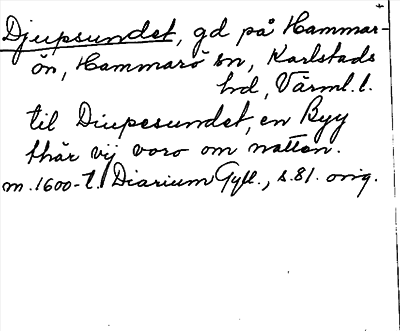 Djupsundet, gd på Hammar-
ön, Hammarö sn, Karlstads
hd, Värml. l.
til Diupesundet, en Byy
thär vij voro om natten.
m. 1600-t. Diarium Gyll., s. 81. orig.